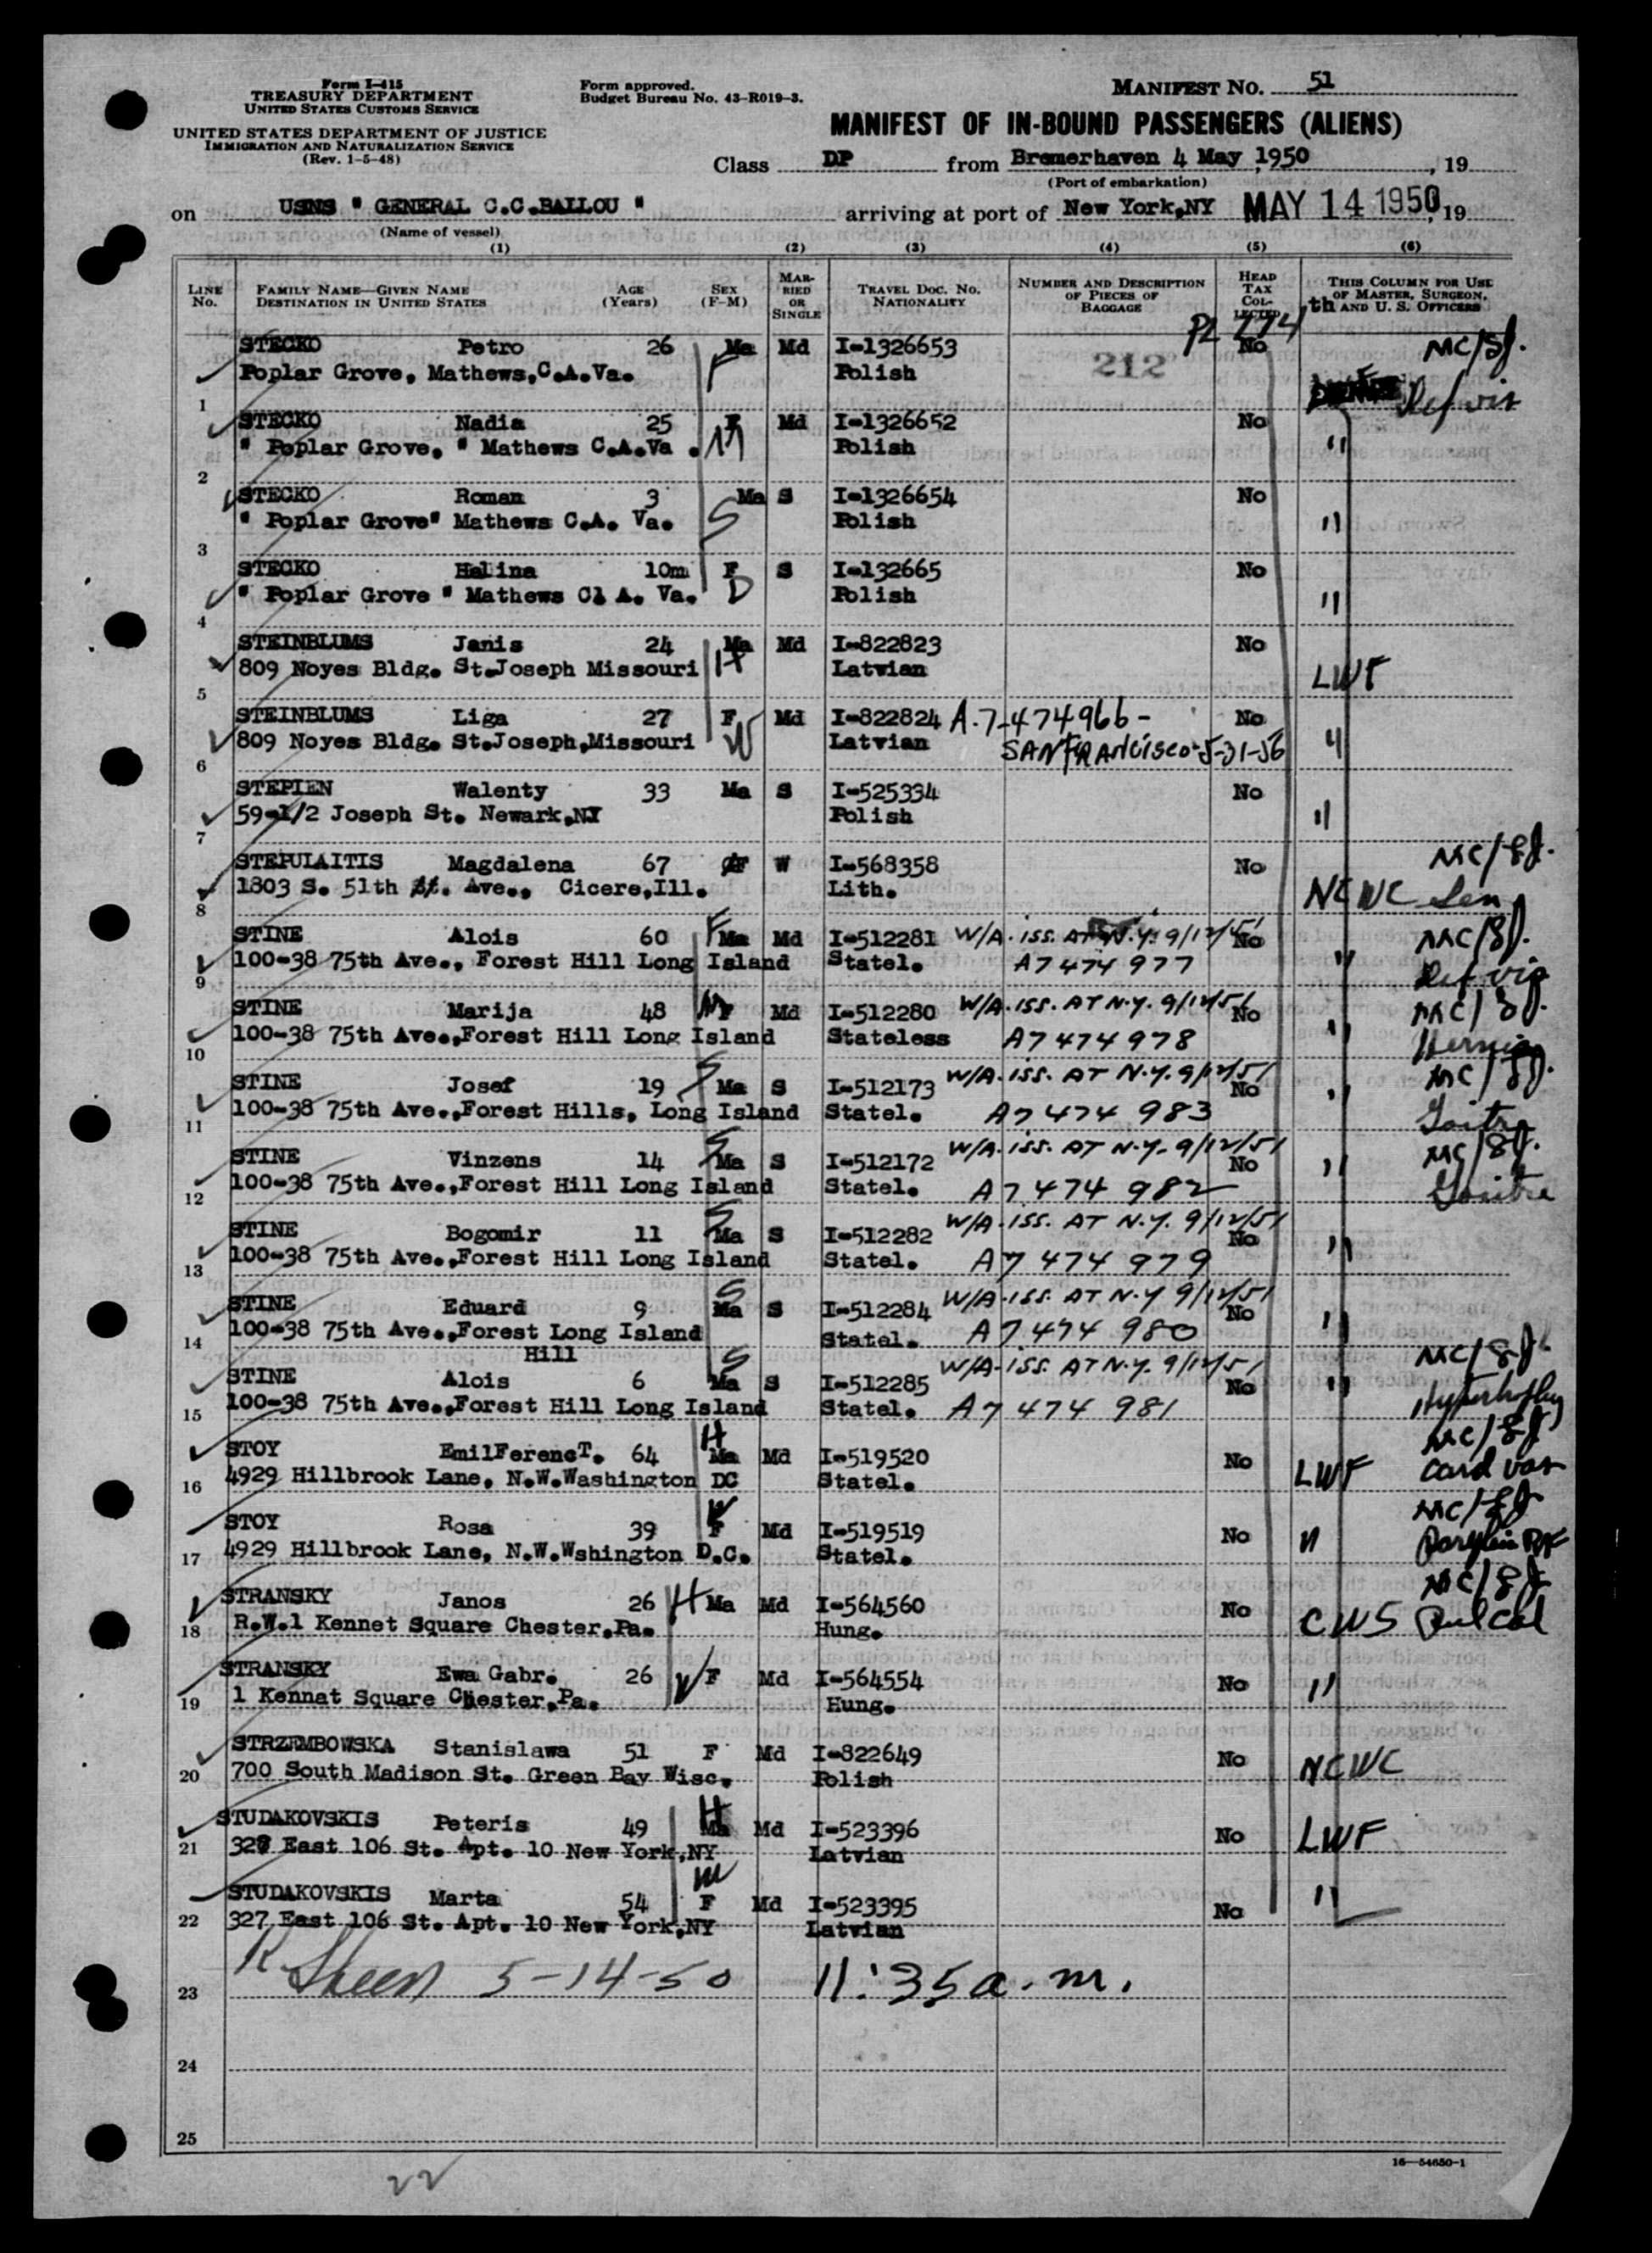 Form I-415
TREASURY DEPARTMENT
UNITED STATES CUSTOMS SERVICE
UNITED STATES DEPARTMENT OF JUSTICE
IMMIGRATION AND NATURALIZATION SERVICE
(Rev. 1-5-48)
Form approved.
Budget Bureau No. 43-R019-3.
MANIFEST NO. 51
MANIFEST OF IN-BOUND PASSENGERS (ALIENS)
Class DP from Bremerhaven 4 May, 1950, 19
(Port of embarkation)
on USNS " GENERAL C.C.BALLOU " arriving at port of New York,NY MAY 14 1950, 19
(Name of vessel)
(1) (2) (3) (4) (5) (6)
LINE No. FAMILY NAME—GIVEN NAME DESTINATION IN UNITED STATES AGE (Years) SEX (F-M) MARRIED OR SINGLE TRAVEL DOC. NO. NATIONALITY NUMBER AND DESCRIPTION OF PIECES OF BAGGAGE HEAD TAX COLLECTED THIS COLUMN FOR USE OF MASTER, SURGEON, AND U. S. OFFICERS
PL 774 th
STECKO Petro 26 Ma Md I-1326653 212 No MC/8J.
Poplar Grove, Mathews,C.A.Va. F Polish Def vis
1
STECKO Nadia 25 F Md I-1326652 No
" Poplar Grove, " Mathews C.A.Va . M Polish "
2
STECKO Roman 3 Ma S I-1326654 No
" Poplar Grove" Mathews C.A. Va. S Polish "
3
STECKO Halina 10m F S I-132665 No
" Poplar Grove " Mathews Cl A. Va. D Polish "
4
STEINBLUMS Janis 24 Ma Md I-822823 No
809 Noyes Bldg. St.Joseph Missouri H Latvian LWF
5
STEINBLUMS Liga 27 F Md I-822824 A.7-474966- No
809 Noyes Bldg. St.Joseph,Missouri W Latvian SAN FRANCISCO-5-31-56 "
6
STEPIEN Walenty 33 Ma S I-525334 No
59-1/2 Joseph St. Newark,NJ Polish "
7
STEPULAITIS Magdalena 67 F W I-568358 No MC/8J.
1803 S. 51th St. Ave., Cicere,Ill. Lith. NCWC Sen
8
STINE Alois 60 F Ma Md I-512281 W/A. iss. AT N.Y. 9/12/51 No MC/8J.
100-38 75th Ave., Forest Hill Long Island Statel. A7 474 977 " Def vis
9
STINE Marija 48 M F Md I-512280 W/A. ISS. AT N.Y. 9/12/51 No MC/8J.
100-38 75th Ave.,Forest Hill Long Island Stateless A7 474 978 " Hernia
10
STINE Josef 19 S Ma S I-512173 W/A. ISS. AT N.Y. 9/12/51 No MC/8J.
100-38 75th Ave.,Forest Hills, Long Island Statel. A7 474 983 " Goitre
11
STINE Vinzens 14 S Ma S I-512172 W/A. ISS. AT N.Y. 9/12/51 No MC/8J.
100-38 75th Ave.,Forest Hill Long Island Statel. A7 474 982 " Goitre
12
STINE Bogomir 11 S Ma S I-512282 W/A. ISS. AT N.Y. 9/12/51 No
100-38 75th Ave.,Forest Hill Long Island Statel. A7 474 979 "
13
STINE Eduard 9 S Ma S I-512284 W/A. ISS. AT N.Y 9/12/51 No
100-38 75th Ave.,Forest Long Island Statel. A7 474 980 "
14
Hill
STINE Alois 6 S Ma S I-512285 W/A. ISS. AT N.Y. 9/12/51 No MC/8J.
100-38 75th Ave.,Forest Hill Long Island Statel. A7 474 981 "
15
STOY EmilFerencT. 64 H Ma Md I-519520 No MC/8J
4929 Hillbrook Lane, N.W.Washington DC Statel. LWF Card vas
16
STOY Rosa 39 W F Md I-519519 No MC/8J
4929 Hillbrook Lane, N.W.Wshington D.C. Statel. "
17
STRANSKY Janos 26 H Ma Md I-564560 No MC/8J
R.W.1 Kennet Square Chester,Pa. Hung. CWS Pul Cal
18
STRANSKY Ewa Gabr. 26 W F Md I-564554 No
1 Kennat Square Chester,Pa. Hung. "
19
STRZEMBOWSKA Stanislawa 51 F Md I-822649 No
700 South Madison St. Green Bay Wisc. Polish NCWC
20
STUDAKOVSKIS Peteris 49 H Ma Md I-523396 No
328 East 106 St. Apt. 10 New York,NY Latvian LWF
21
STUDAKOVSKIS Marta 54 W F Md I-523395 No
327 East 106 St. Apt. 10 New York,NY Latvian "
22
R. Sheen 5-14-50 11:35 a.m.
23
24
25
16—54650-1
22